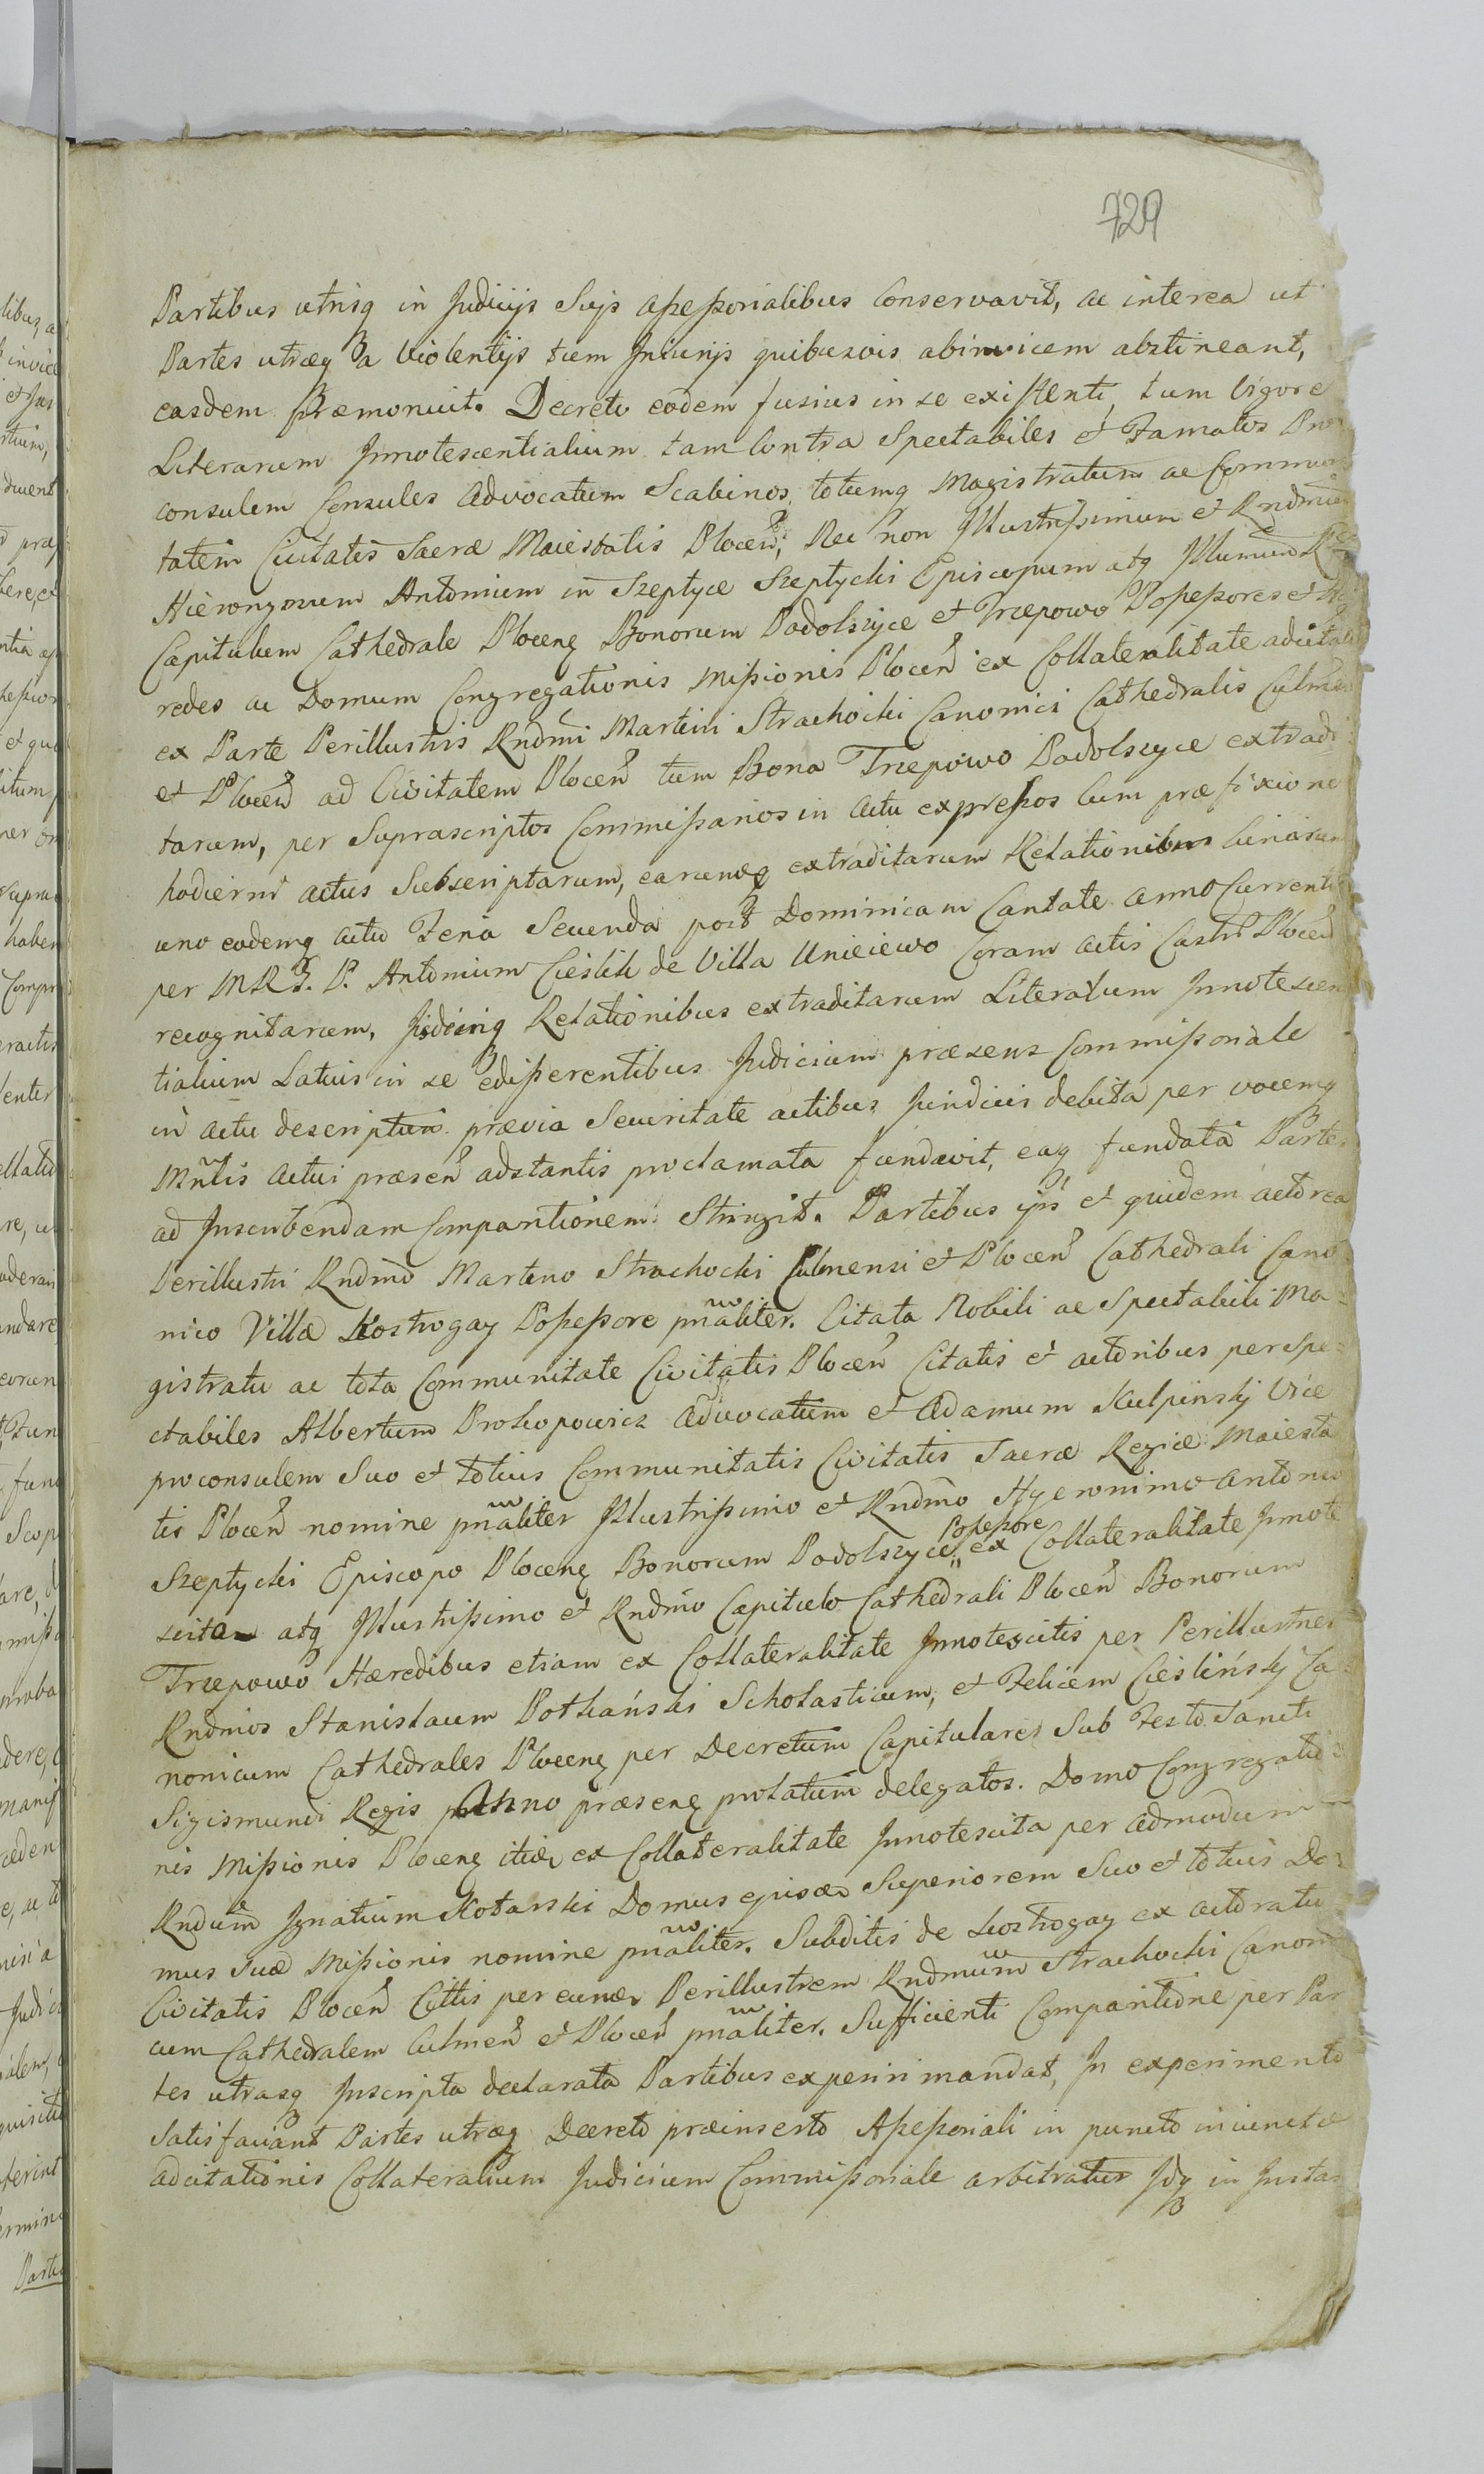 729
Partibus utrisq in Judicijs Suis assessorialibus Conservavit, ac interea ut
Partes utræq a Violentijs tum Injurijs quibusvis abinvicem abstineant,
easdem præmonuit. Decreto eodem fusius in se existenti, tum Vigore
Literarum Innotescentialium tam Contra Spectabiles et Famatos Pro
consulem Consules Advocatum Scabinos totumq Magistratum ac Communi
tatem Civitatis Sacræ Maiestatis Plocen, Nec non Illustrissimum et Rndmum
Hieronymum Antonium in Szeptyce Szeptycki Episcopum atq Illumum
Capitulum Cathedrale Plocens Bonorum Podolszyce et Trzepowo Possessores et Hæ
redes ac Domum Congregationis Missionis Plocen ex Collateralitate adcitatis
ex Parte Perillustris Rndmi Martini Strachocki Canonici Cathedralis Culmen
et Plocen ad Civitatem Plocen tum Bona Trzepowo Podolszyce extradi
tarum, per Suprascriptos Commissarios in Actu expressos Cum præfixione
hodierni actus Subscriptarum, earumq extraditarum Relationibus binarum
uno eodemq actu Feria Secunda post Dominicam Cantate anno Currenti
per MRG. P. Antonium Cieslik de Villa Unieiewo Coram Actis Castri Plocen
recognitarum, Iisdemq Relationibus extraditarum Literarum Innotescen
tialium Latius in se edisserentibus Judicium præsens Commissoriale
in actu descriptum prævia Securitate actibus Juridicis debita per vocemq
Mnlis actui præsen adstantis proclamata fundavit, eaq fundata Partes
ad Inscribendam Comparitionem Stringit. Partibus ijs et quidem actorea
Perillustri Rndmo Martino Strachocki Culmensi et Plocen Cathedrali Cano
nico Villæ Kostrogay Possessore pnaliter. Citata Nobili ac Spectabili Ma
gistratu ac tota Communitate Civitatis Plocen Citatis et actoribus per Spe
ctabiles Albertum Prokopowicz Advocatum et Adamum Kulpinskj Vice
proconsulem Suo et totius Communitatis Civitatis Sacræ Regiæ Maiesta
tis Plocen nomine pnaliter Illustrissimo et Rndmo Hyeronimo Antonio
Szeptycki Episcopo Plocens Bonorum Podolszyce Possessore ex Collateralitate Innote
scita atq Illustrissimo et Rndmo Capitulo Cathedrali Plocen Bonorum
Trzepowo Hæredibus etiam ex Collateralitate Innotescitis per Perillustres
Rndmos Stanislaum Pothański Scholasticum, et Felicem Cieslińskj Ca
nonicum Cathedrales Plocens per Decretum Capitulares Sub Festo Sancti
Sigismundi Regis Anno præsens prolatum delegatos. Domo Congregatio
nis Missionis Plocens itidem ex Collateralitate Innotescita per Admodum
Rndum Ignatium Kotarski Domus ejusdem Superiorem Suo et totius Do
mus Suæ Missionis nomine pnaliter. Subditis de Kostrogay ex actoratu
Civitatis Plocen Cittis per eundem Perillustrem Rndmum Strachocki Canoni
cum Cathedralem Culmen et Plocen pnaliter. Sufficienti Comparitione per Par
tes utrasq Inscripta declarata Partibus experiri mandat, In experimento
Satisfaciant Partes utræq Decreto præinserto Assessoriali in puncto iniunctæ
adcitationis Collateralium Judicium Commissoriale arbitratur Idq in Instan